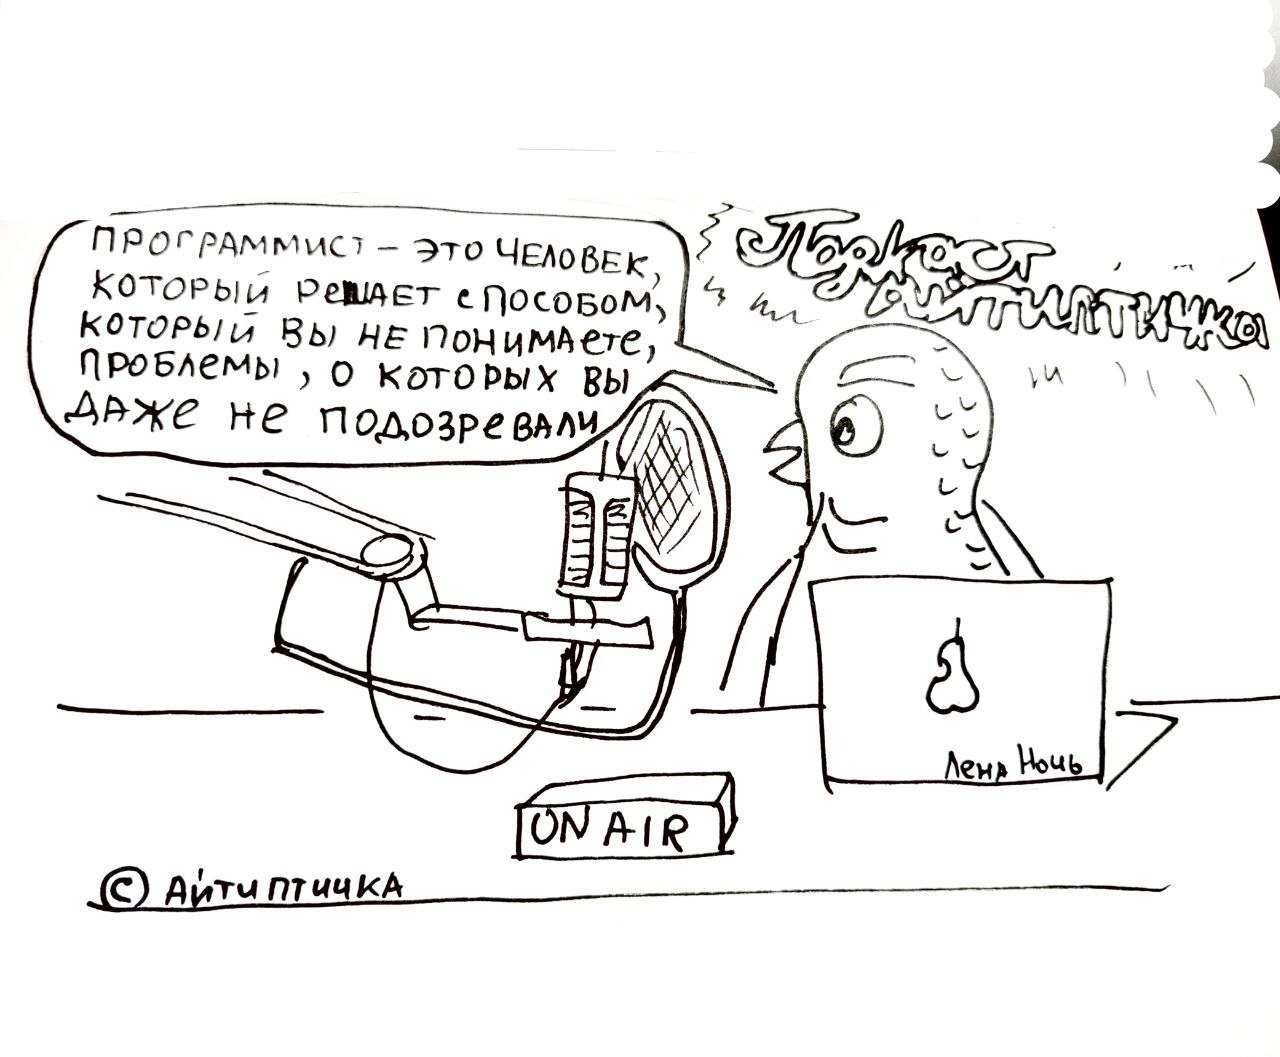 ПРОГРАММИСТ – ЭТО ЧЕЛОВЕК,
КОТОРЫЙ РЕШАЕТ СПОСОБОМ,
КОТОРЫЙ ВЫ НЕ ПОНИМАЕТЕ,
ПРОБЛЕМЫ, О КОТОРЫХ ВЫ
ДАЖЕ НЕ ПОДОЗРЕВАЛИ
Подкаст
Айтиптичка
Лена Ночь
ON AIR
© АЙТИПТИЧКА